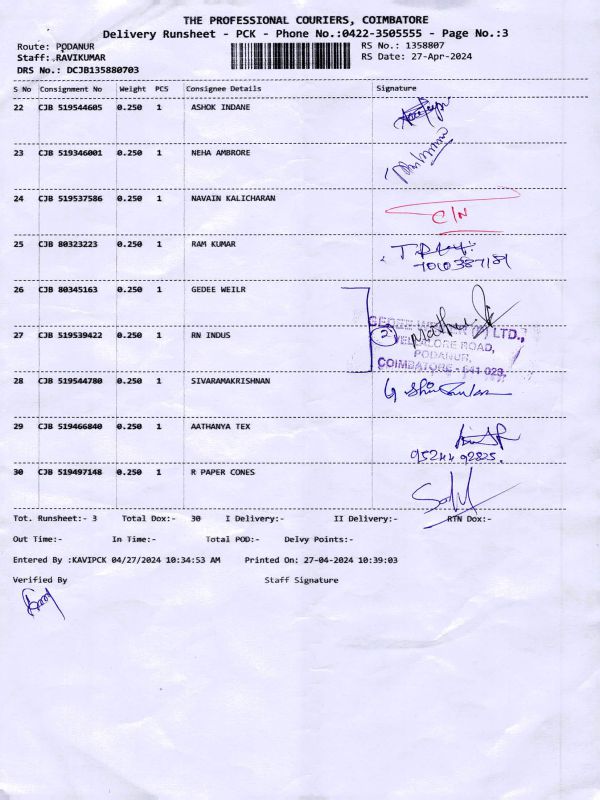 THE PROFESSIONAL COURIERS, COIMBATORE
Delivery Runsheet - PCK - Phone No.:0422-3505555 - Page No.:3
Route: PODANUR
RS No.: 1358807
Staff: RAVIKUMAR
RS Date: 27-Apr-2024
DRS No.: DCJB135880703
S No Consignment No Weight PCS Consignee Details Signature
22 CJB 519544605 0.250 1 ASHOK INDANE
23 CJB 519346001 0.250 1 NEHA AMBRORE
24 CJB 519537586 0.250 1 NAVAIN KALICHARAN
C/N
25 CJB 80323223 0.250 1 RAM KUMAR
7010387181
26 CJB 80345163 0.250 1 GEDEE WEILR
27 CJB 519539422 0.250 1 RN INDUS
2
LTD.,
VELLALORE ROAD,
PODANUR,
COIMBATORE - 641 023.
28 CJB 519544780 0.250 1 SIVARAMAKRISHNAN
29 CJB 519466840 0.250 1 AATHANYA TEX
9524492825.
30 CJB 519497148 0.250 1 R PAPER CONES
Tot. Runsheet:- 3 Total Dox:- 30 I Delivery:- II Delivery:- RTN Dox:-
Out Time:- In Time:- Total POD:- Delvy Points:-
Entered By :KAVIPCK 04/27/2024 10:34:53 AM Printed On: 27-04-2024 10:39:03
Verified By Staff Signature